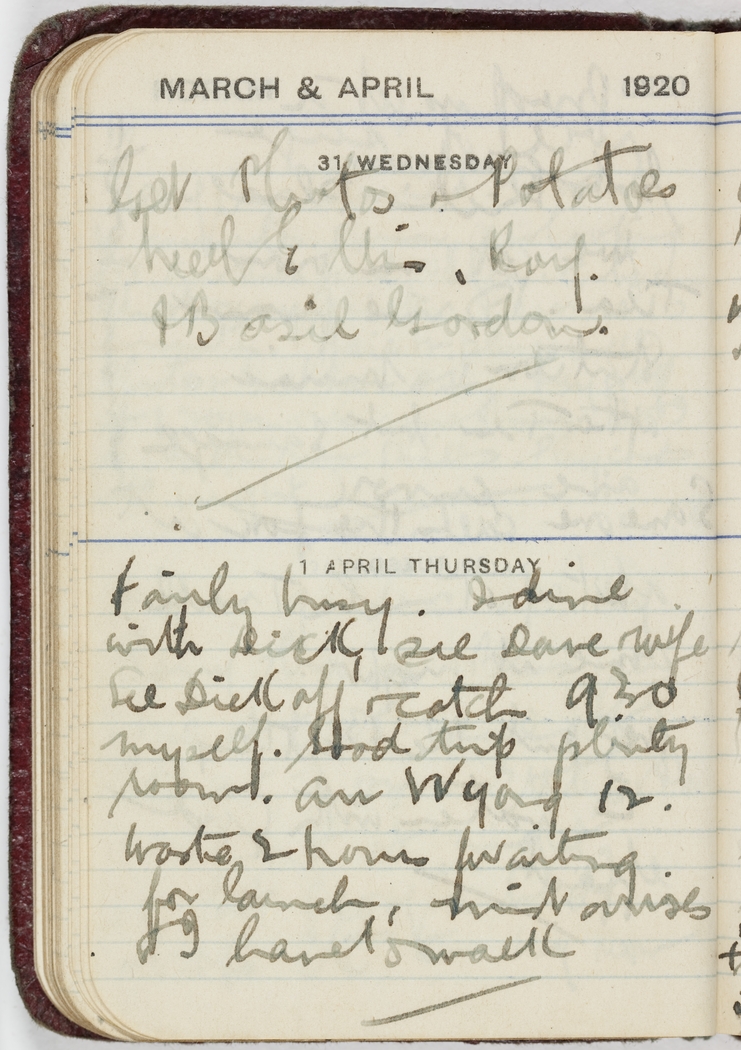 MARCH & APRIL 1920
31 WEDNESDAY
Get Photos & Potatoes
meet Ellis, Roy.
& Basil Gordon.
1 APRIL THURSDAY
Fairly busy. I dine
with Dick, see Dave & wife
See Dick off & catch 930
myself. Good trip plenty
room. arr Wyong 12.
Waste 2 hours waiting
for launch, mist arises
& I have to walk